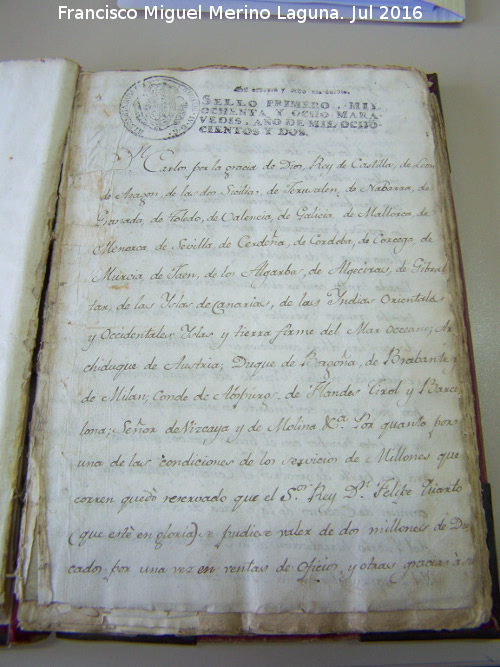 Francisco Miguel Merino Laguna. Jul 2016
SELLO PRIMERO, MIL
OCHENTA Y OCHO MARA-
VEDIS, AÑO DE MIL OCHO-
CIENTOS Y DOS.
Dn Carlos por la gracia de Dios, Rey de Castilla, de Leon
de Aragon, de las dos Sicilias, de Jerusalen, de Nabarra, de
Granada, de Toledo, de Valencia, de Galicia, de Mallorca, de
Menorca, de Sevilla, de Cerdeña, de Cordoba, de Corcega, de
Murcia, de Jaen, de los Algarbes, de Algeciras, de Gibral
tar, de las Yslas de Canarias, de las Yndias Orientales
y Occidentales Yslas y tierra firme del Mar Oceano; Ar
chiduque de Austria; Duque de Borgoña, de Brabante
de Milan; Conde de Abspurg, de Flandes Tirol y Barce
lona; Señor de Vizcaya y de Molina &ca. Por quanto por
una de las condiciones de los servicios de Millones que
corren quedó reservado que el Sor. Rey Dn. Felipe Quarto
(que esté en gloria) se pudiese valer de dos millones de Du
cados por una vez en ventas de oficios y otras gracias á